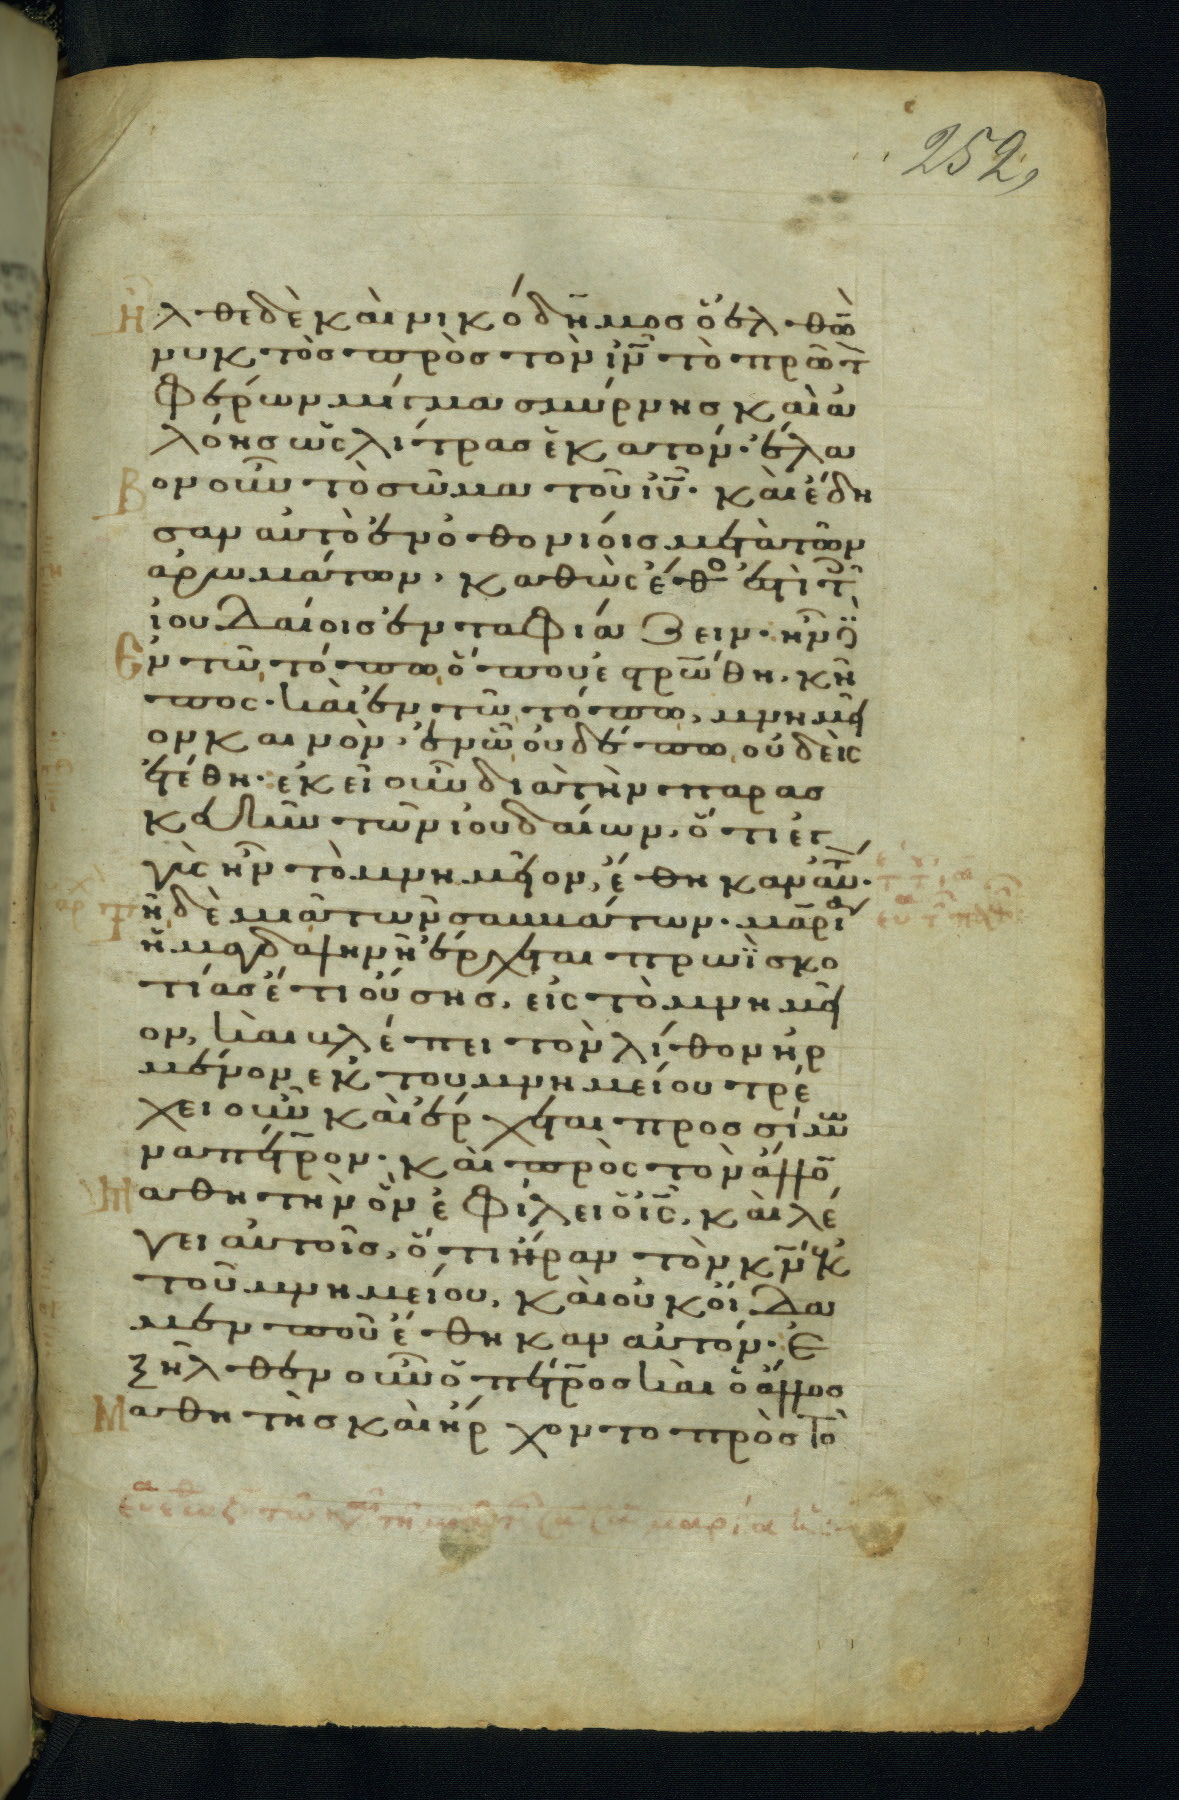 252
Ἦλθε δὲ καὶ νικόδημοσ ὁ ἐλθὼ̅
νυκτὸσ πρὸσ τὸν ι̅ν̅ τὸ πρῶτ
φέρων μίγμα σμύρνησ καὶ ἀ
λόησ ὡς λίτρασ ἑκατόν· ἔλα
Βον οὖν τὸ σῶμα τοῦ ι̅υ̅· καὶ ἔδη
σαν αὐτὸ ἐν ὀθονίοισ μετὰ τῶν
ἀρωμάτων, καθὼς ἔθο ἐστὶ τ
ἰουδαίοισ ἐνταφιάζειν· ἦν δ
Ἐν τῶ τόπω ὅπου ἐστρώθη, κῆ
πος· καὶ ἐν τῶ τόπω, μνημεῖ
ον καινὸν· ἐν ὧ οὐδέπω οὐδεὶς
ἐτέθη· ἐκεῖ οὖν διὰ τὴν παρασ
κευὴν τῶν ἰουδαίων, ὅτι ἐγ
γὺς ἦν τὸ μνημεῖον, ἔθηκαν αὐτ·
Τῆ δὲ μιᾶ τῶν σαββάτων· μαρί
ἡ μαγδαληνὴ ἔρχεται πρωῒ σκο
τίασ ἔτι οὔσησ, εἰς τὸ μνημεῖ
ον, καὶ βλέπει τὸν λίθον ἠρ
μένον ἐκ του μνημείου τρέ
χει οὖν καὶ ἔρχεται προσ σίμω
να πέτρον· καὶ πρὸς τὸν ἄλλο̅
Μαθητὴν ὃν ἐφίλει ὁ ι̅ς̅, καὶ λέ
γει αὐτοῖσ, ὅτι ἦραν τὸν κ̅ν̅ ἐκ
τοῦ μνημείου, καὶ οὐκ οἴδα
μεν ποῦ ἔθηκαν αὐτόν· Ἐ
ξῆλθεν οὖν ὁ πέτροσ καὶ ὁ ἄλλοσ
Μαθητὴσ καὶ ἤρχοντο πρὸσ τὸ